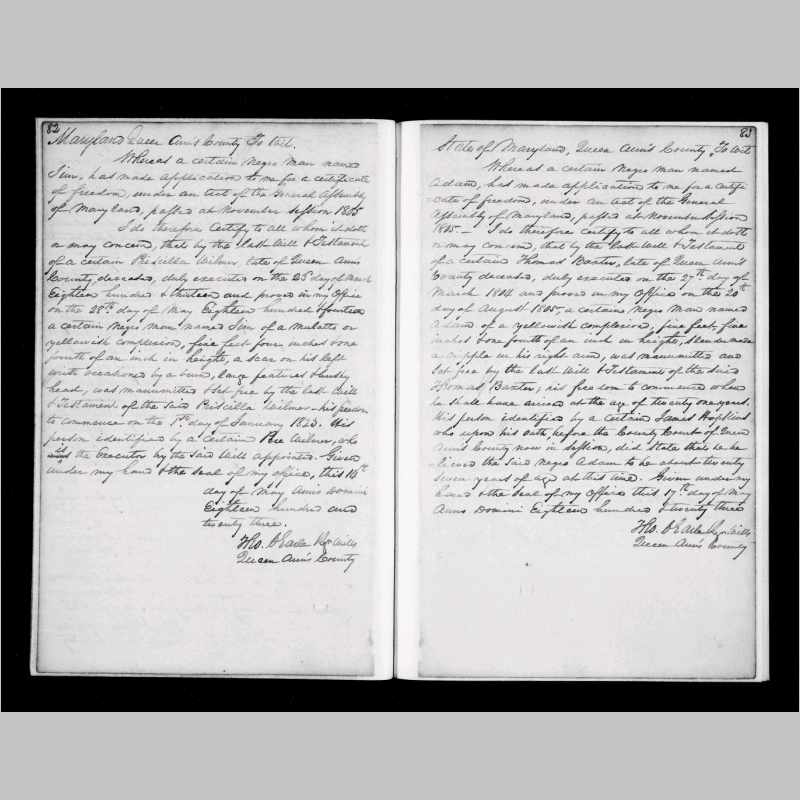 82
Maryland Queen Ann's County To Wit.
Whereas a certain Negro man named
Jim, has made application to me for a certificate
of freedom, under an act of the General Assembly
of Maryland, passed at November session 1805
I do therefore Certify to all whom it doth
or may concern, that by the last Will & Testament
of a certain Priscilla Wilmer, late of Queen Anns
County, deceased, duly executed on the 23d day of March
Eighteen hundred & thirteen and proved in my Office
on the 28th day of May Eighteen hundred & fourteen
a certain Negro man named Jim of a mulatto or
yellowish complexion, five feet four inches & one
fourth of an inch in height, a scar on his left
occasioned by a burn, large features & bushy
head, was manumitted & set free by the last Will
& Testament of the said Priscilla Wilmer - his freedom
to commence on the 1st day of January 1823. His
person identified by a certain Wilmer, who
is the Executor by the said Will appointed. Given
under my hand & the seal of my office, this 16th
day of May Anno Domini
Eighteen hundred and
twenty three.
Tho. C Earle Regr Wills
Queen Ann's County
83
State of Maryland, Queen Ann's County, To Wit
Whereas a certain Negro man named
Adam, has made application to me for a certifi
cate of freedom, under an act of the General
Assembly of Maryland, passed at November session
1805. — I do therefore certify to all whom it doth
or may concern, that by the last Will & Testament
of a certain Thomas Baxter, late of Queen Ann's
County deceased, duly executed on the 27th day of
March 1804 and proved in my Office on the 20th
day of August 1805, a certain Negro man named
Adam of a yellowish complexion, five feet, five
inches & one fourth of an inch in height, slender made
a cripple in his right arm, was manumitted and
set free by the last Will & Testament of the said
Thomas Baxter; his freedom to commence when
he shall have arrived at the age of twenty one years.
His person identified by a certain James Hopkins
who upon his oath, before the County Court of Queen
Ann's County now in session, did state that he be
lieved the said negro Adam to be about twenty
seven years of age at this time. Given under my
hand & the seal of my Office this 17th day of May
Anno Domini Eighteen hundred & twenty three
Tho. C Earle Regr Wills
Queen Ann's County